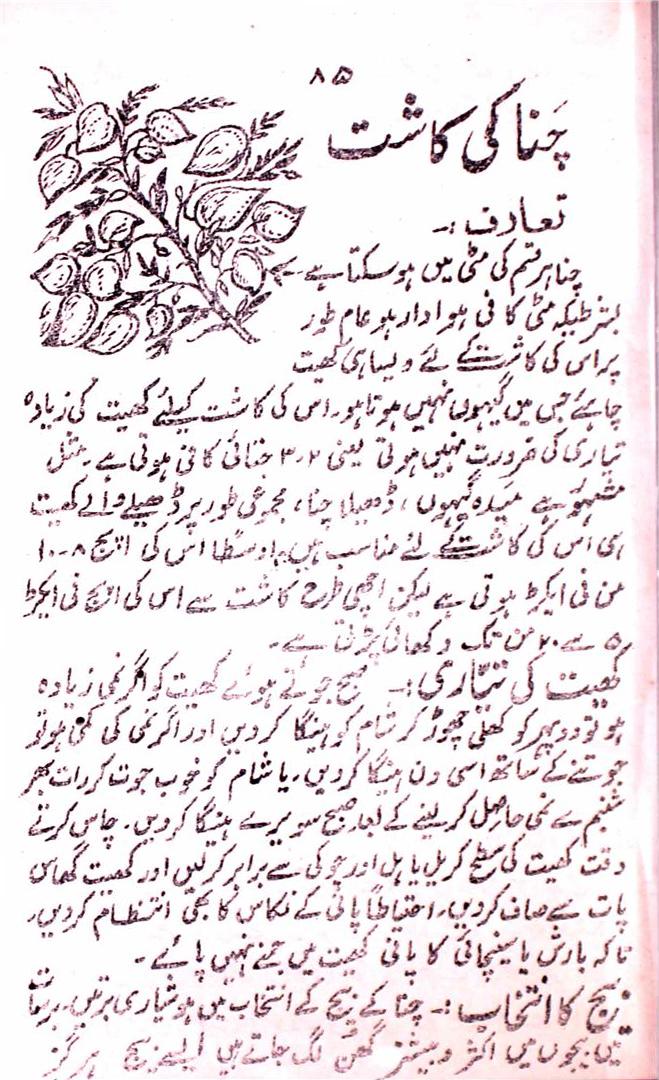 ۸۵
چَنا کی کاشت
تعارف :۔
چنا ہر قسم کی مٹی میں ہو سکتا ہے۔
بشرطیکہ مٹی کافی ہوادار ہو عام طور
پر اس کی کاشت کے لئے ویسا ہی کھیت
چاہئے جس میں گیہوں نہیں ہوتا ہو۔ اس کی کاشت کیلئے کھیت کی زیادہ
تیاری کی ضرورت نہیں ہوتی یعنی ۲-۳ جتائی کافی ہوتی ہے۔ مثل
مشہور ہے میدہ گیہوں، ڈھیلا چنا، مجموعی طور پر ڈھیلے والے کھیت
ہی اس کی کاشت کے لئے مناسب ہیں۔ اوسطاً اس کی اپج ۸-۱۰
من فی ایکڑ ہوتی ہے لیکن اچھی طرح کاشت سے اس کی اپج فی ایکڑ
۱۵ سے ۲۰ من تک دکھائی پڑتی ہے۔
کھیت کی تیّاری :۔ صبح جوتے ہوئے کھیت کو اگر نمی زیادہ
ہو تو دوپہر کو کھلی چھوڑ کر شام کو ہینگا کر دیں اور اگر نمی کی کمی ہو تو
جوتنے کے ساتھ اسی دن ہینگا کر دیں۔ یا شام کو خوب جوت کر رات بھر
شبنم سے نمی حاصل کر لینے کے بعد صبح سویرے ہینگا کر دیں۔ چاس کرتے
وقت کھیت کی سطح کریل یا ہل اور چوکی سے برابر کر لیں اور کھیت گھاس
پات سے صاف کر دیں۔ احتیاطاً پانی کے نکاس کا بھی انتظام کر دیں۔
تاکہ بارش یا سینچائی کا پانی کھیت میں جمنے نہیں پائے۔
بیج کا انتخاب :۔ چنا کے بیج کے انتخاب میں ہوشیاری برتیں۔ برسات
میں بیجوں میں اکثر و بیشتر گھُن لگ جاتے ہیں ایسے بیج ہرگز